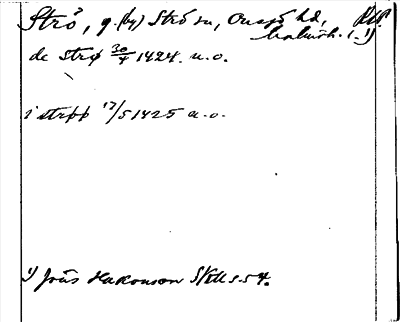 Strö, g. (by) Strö sn, Onsjö hd,
Malmöh. l. 1)
de strø 30/4 1424. u.o.
i strøø 17/5 1425 u.o.
1) Jöns Hakonson SkU s. 54.